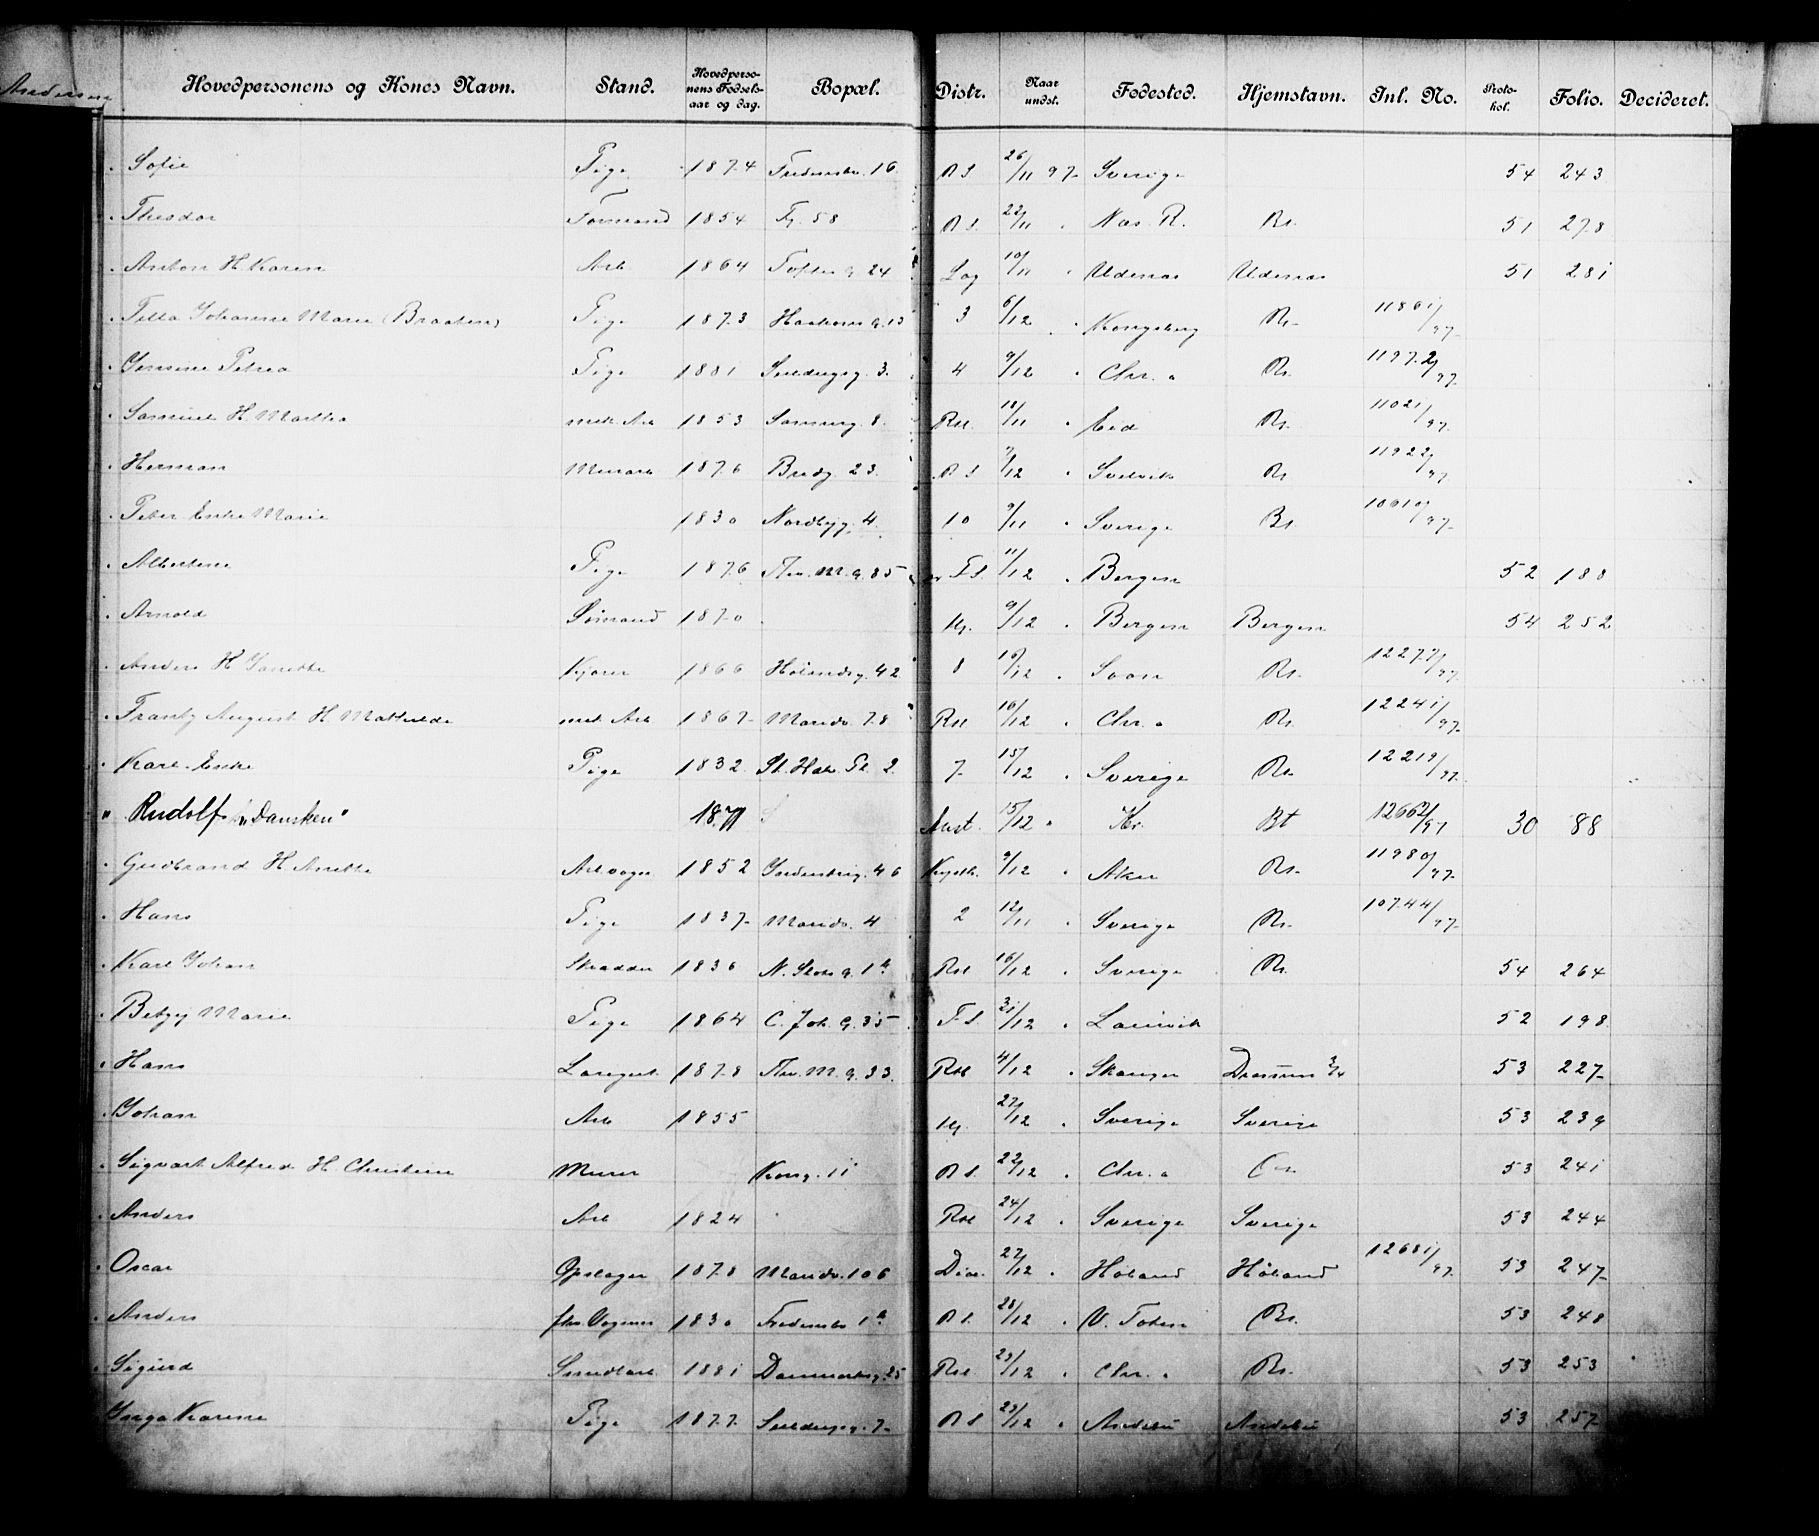 Andersen
Hovedpersonens og Kones Navn. Stand. Hovedperso-nens Fødsels-aar og dag. Bopæl. Distr. Naar undst. Fødested. Hjemstavn. Inl. No. Proto-kol. Folio. Decideret.
" Sofie Pige 1874 16 R S 26/11 97 Sverige 54 243
" Theodor Formand 1854 58 R S 22/11 " Næs. R. Rs. 51 278
" Anton H. Karen Arb 1864 Toftes g. 24 10/11 " Udenæs Udenæs 51 281
" Tilla Johanne Marie (Braaten) Pige 1873 Haakons g. 13 3 6/12 " Kongsberg Rs. 11861/97
" Jensine Petrea Pige 1881 3. 4 9/12 " Chr. a Rs. 11972/97
" Samuel H. Martha mek. Arb 1853 8. Rst. 18/11 " Eid Rs. 11021/97
" Herman Murarb 1876 Bredg. 23. R S 7/12 " Svelvik Rs 11922/97
" Peter Enke Marie 1830 Nordbyg. 4. 10 9/11 " Sverige Rs 10610/97
" Albertine Pige 1876 Thv. M. g. 35 F S. 11/12 " Bergen 52 188
" Arnold Sømand 1870 9/12 " Bergen Bergen 54 252
" Anders H. Janette Kjører 1866 Hølandsg. 42 8 16/12 " Soon Rs. 12277/97
" Frantz August H. Mathilde mek Arb 1867 Maridv. 78 Rst 16/12 " Chr. a Rs. 12241/97
" Karl. Enke Pige 1832 St. Hah. Pl. 2. 7 15/12 " Sverige Rs. 12219/97
" Rudolf "Dansken" 1871 Aust. 15/12 " Kr. Bt 12662/97 30 88
" Gudbrand H. Anette Arb 1852 46 9/12 " Aker Rs. 11980/97
" Hans Pige 1837 Maridv. 4 2 12/11 " Sverige Rs. 10744/97
" Karl Johan Skrædder 1836 N. Slots g. 1 a Rst 16/12 " Sverige Rs. 54 264
" Betzy Marie Pige 1864 C. Joh. G. 35 F S. 31/12 " Laurvik 52 198
" Hans 1878 Thv. M. g. 33. Rst 4/12 " Skanger 53 227
" Johan Arb 1855 27/12 " Sverige Sverige 53 239
" Sigvart Alfred H. Christine Murer Kong. 11 R S. 22/12 " Chr. a 53 241
" Anders Arb 1824 Rst 24/12 " Sverige Sverige 53 244
" Oscar Opslager 1878 Maridv. 106 27/12 " Høland Høland 12681/97 53 247
" Anders 1830 1 a R S. 28/12 " V. Toten Rs. 53 248
" Sigurd Smedlærl. 1881 Danmarksg. 25 Rst 23/12 " Chr. a Rs. 53 253
Inga Karine Pige 1877 7 R S 23/12 " Andebu Andebu 53 257